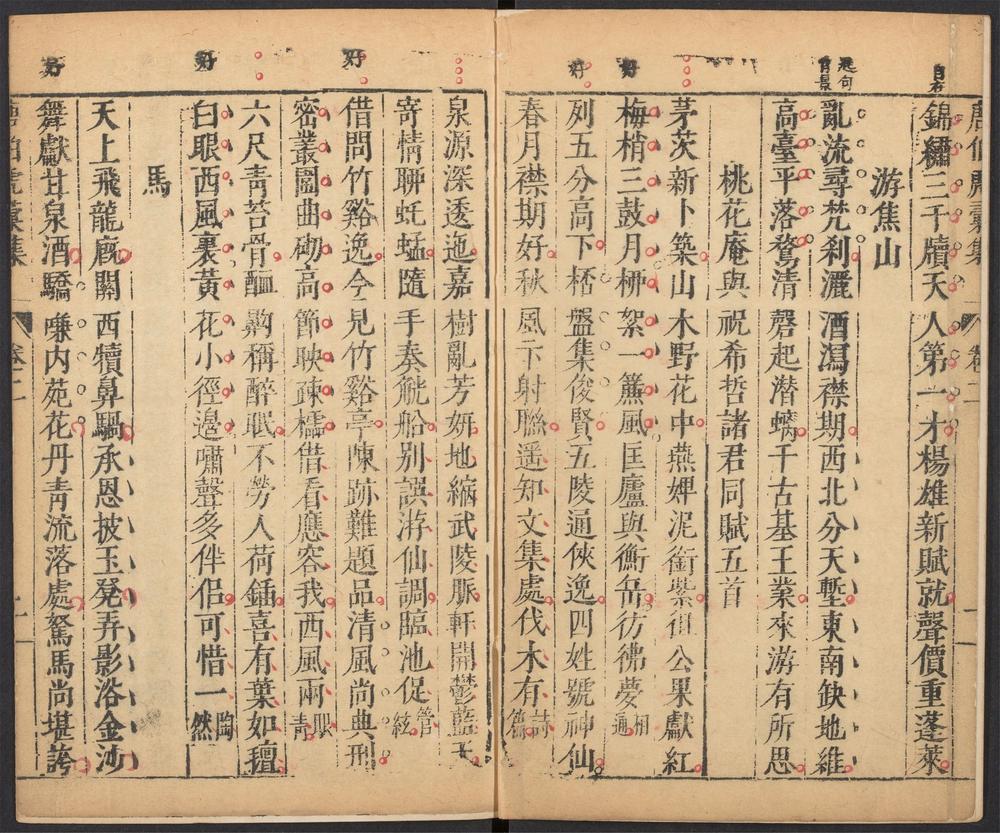 唐伯虎彙集 卷二 一
錦繡三千牘天人第一才楊雄新賦就聲價重蓬萊
游焦山
起句
亂流尋梵刹灑酒瀉襟期西北分天塹東南缺地維
高臺平落鶩清磬起潛螭千古基王業來游有所思
桃花庵與祝希哲諸君同賦五首
茅茨新卜築山木野花中燕婢泥銜紫狙公果獻紅
好
梅梢三鼓月柳絮一簾風匡廬與衡岳彷彿夢相通
好
列五分高下桮盤集俊賢五陵通俠逸四姓號神仙
春月襟期好秋風下射聯遥知文集處伐木有詩篇
泉源深透迤嘉樹亂芳妍地縮武陵脈軒開鬱藍天
寄情聊蚯蜢隨手奏觥船别誤游仙調臨池促管絃
好
借問竹谿逸今見竹谿亭陳跡難題品清風尚典刑
密叢圍曲砌高節映疎櫺借看應容我西風兩眼青
六尺青苔骨稱醉眠不勞人荷鍤喜有葉如氊
好
白眼西風裏黄花小徑邊嘯聲多伴侣可惜一陶然
馬
天上飛龍廐關西犢鼻騧承恩披玉凳弄影浴金沙
好
舞獻甘泉酒驕嘶内苑花丹青流落處駑馬尚堪誇
唐伯虎彙集 卷二 二